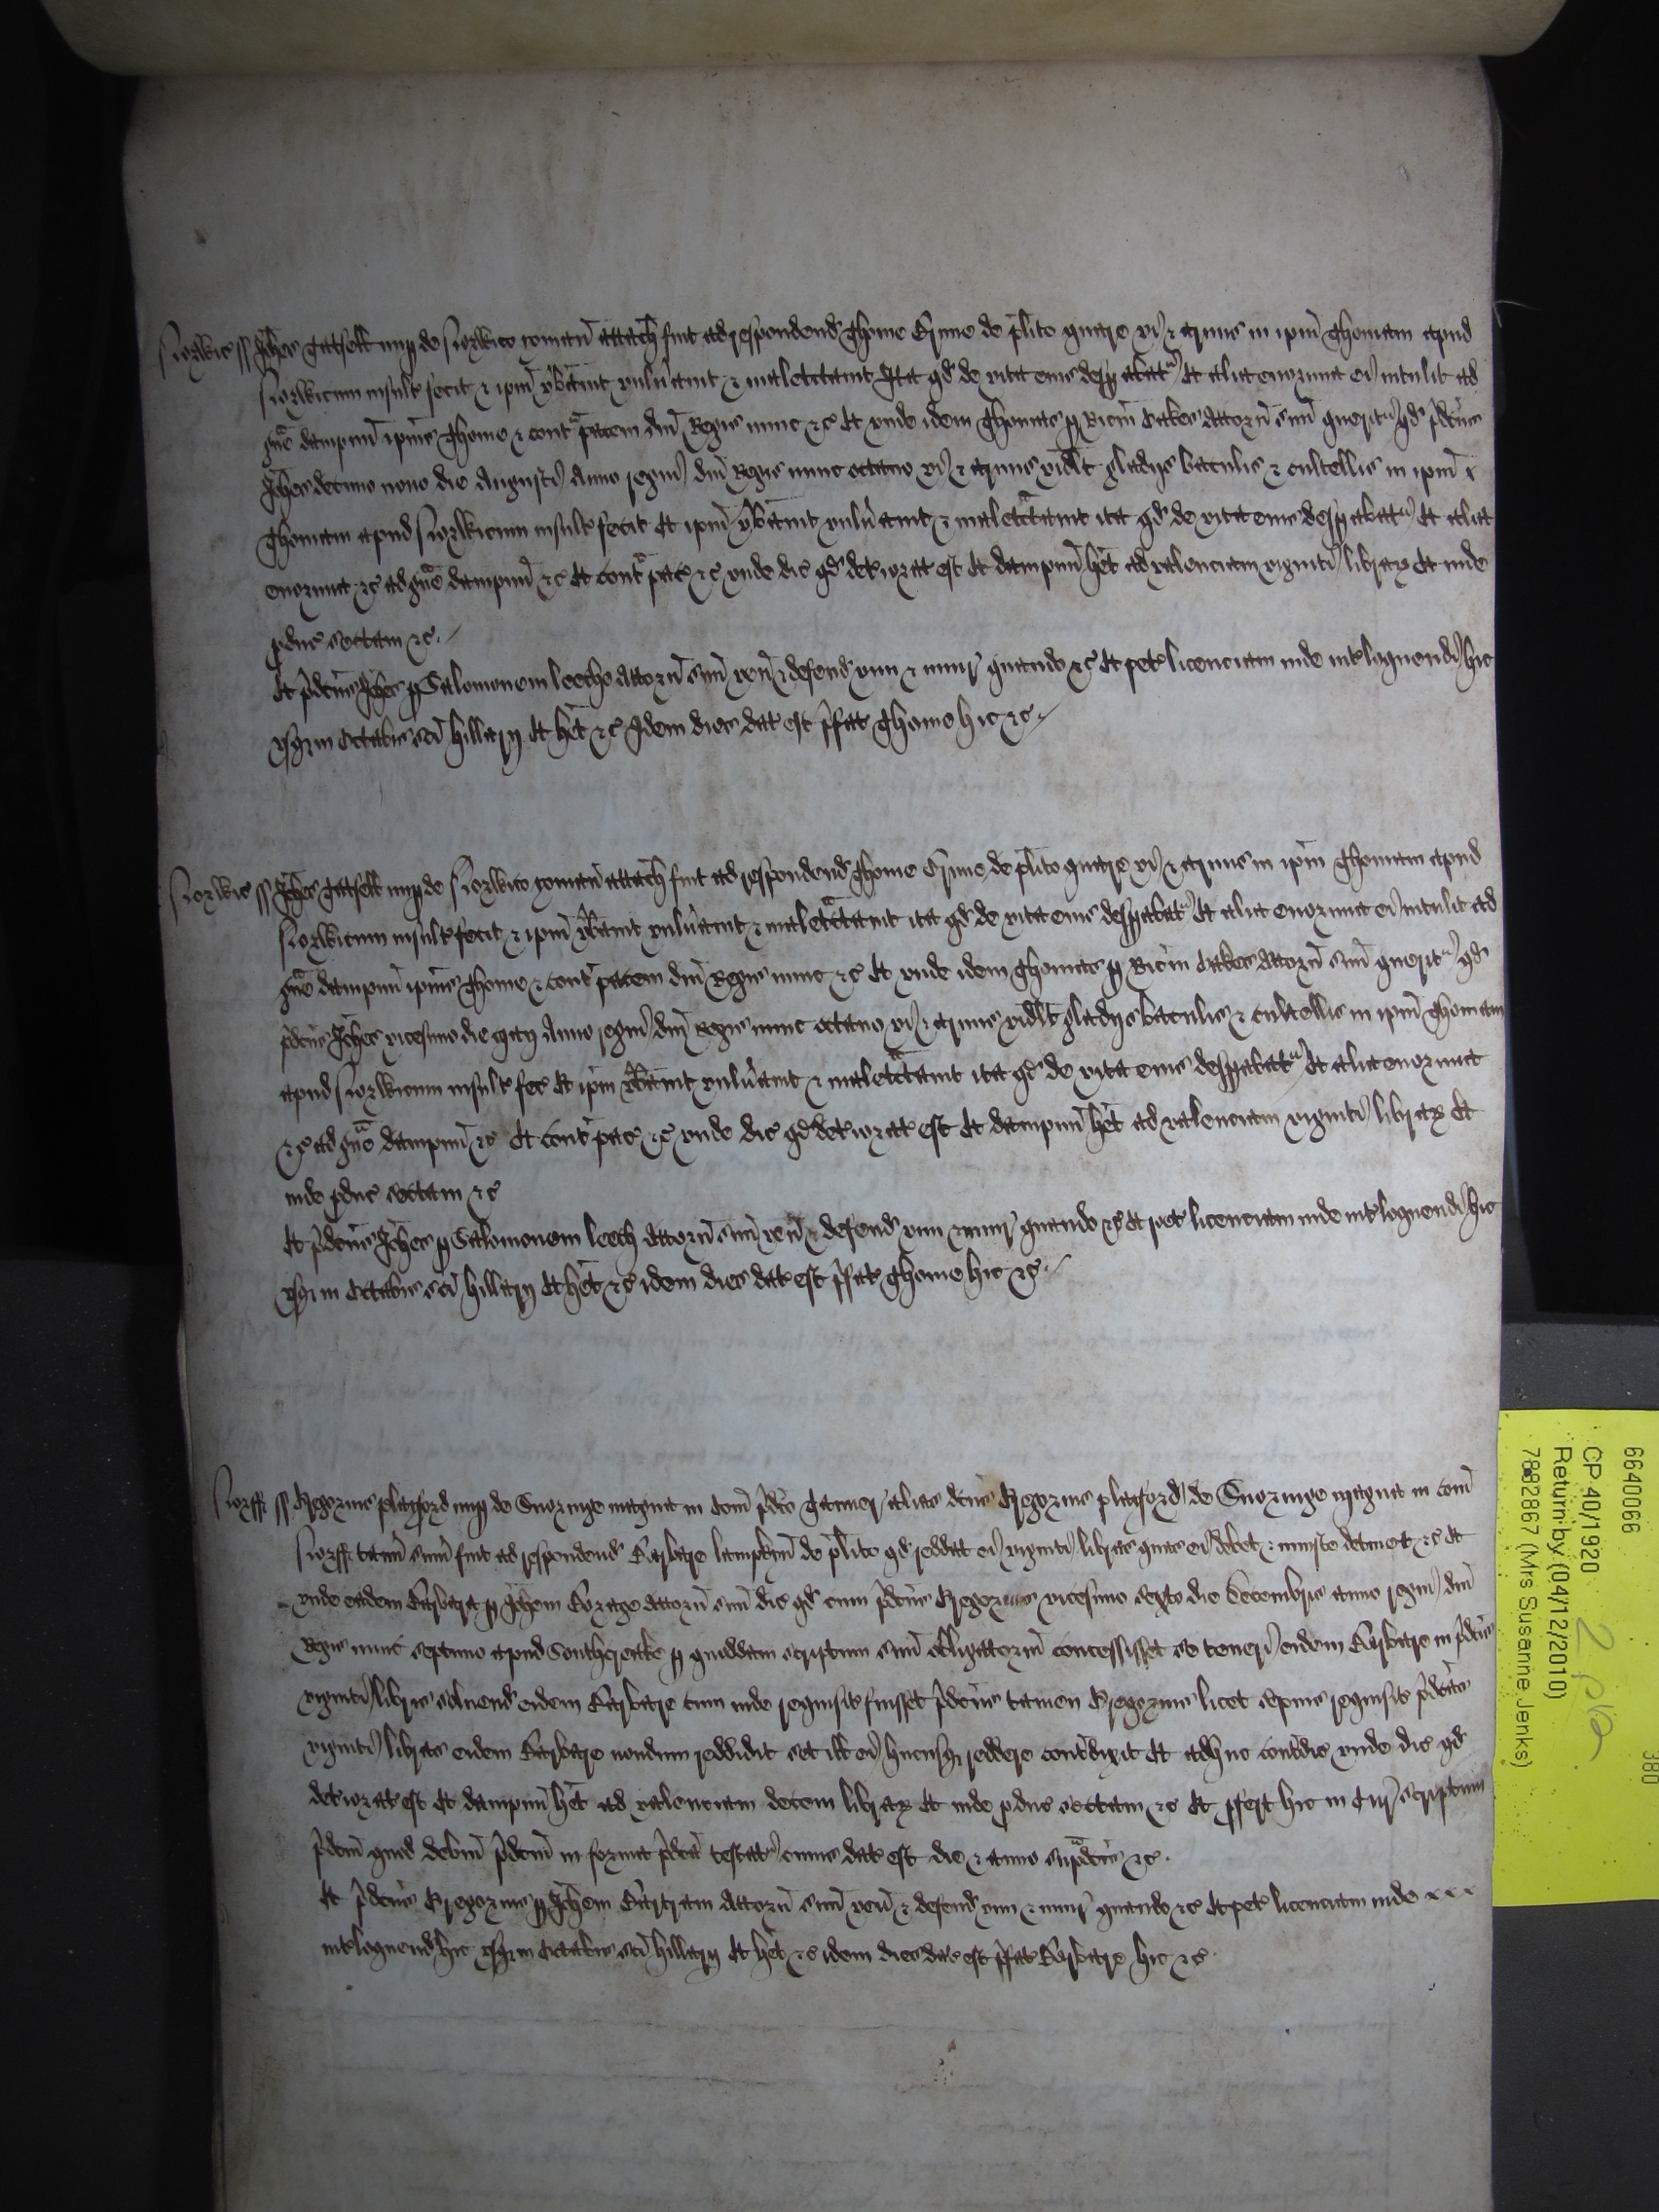 Norwic ss Johes Gatsell nup de Norwico yoman attach fuit ad respondend Thome Grene de plito quare vi & armis in ipm Thomam apud
Norwicum insult fecit & ipm vbavit vulnavit & maletractavit Ita qd de vita eius despabat Et alia enormia ei intulit ad
grave dampnu ipius Thome & contra pacem dni Regis nunc &c Et unde idem Thomas p Ricm Cakes Attorn suu querit qd pdcus
Johes decimo nono die Augusti Anno regni dni Regis nunc octavo vi & armis vidlt gladijs baculis & cultellis in ipm x
Thomam apud Norwicum insult fecit Et ipm vbavit vulnavit & maletractavit ita qd de vita eius despabat Et alia
enormia &c ad grave dampnu &c Et contra pac &c unde dic qd det iorat est Et dampnu het ad valenciam viginti librar Et inde
pduc sectam &c
Et pdcus Johes p Salomonem Leeche Attorn suu ven & defend vim & iniur quando &c Et pet licenciam inde intloquendi hic
usq in Octabis sci Hillarij Et het &c Idem dies dat est pfat Thome hic &c
Norwic ss Johes Gatsell nup de Norwico yoman attach fuit ad respondend Thome Grene de plito quare vi & armis in ipm Thomam apud
Norwicum insult fecit & ipm vbavit vulnavit & maletractavit ita qd de vita eius despabat Et alia enormia ei intulit ad
grave dampnu ipius Thome & cont pacem dni Regis nunc &c Et unde idem Thomas p Ricm Cakes Attorn suu querit qd
pdcus Johes vicesimo die Maij Anno regni dni Regis nunc octavo vi & armis vidlt gladijs baculis & cultellis in ipm Thomam
apud Norwicum insult fec Et ipm vbavit vulnavit & maletractavit ita qd de vita eius despabat Et alia enormia
&c ad grave dampnu &c Et cont pac &c unde dic qd det iorat est Et dampnu het ad valenciam viginti librar Et
inde pduc sectam &c
Et pdcus Johes p Salomonem Leech Attorn suu ven & defend vim & iniur quando &c Et pet licenciam inde intloquendi hic
usq in Octabis sci Hillarij Et het &c idem dies dat est pfat Thome hic &c
Norff ss Gregorius Platford nup de Snoringe magna in Com pdco alias dcus Gregorius Platford de Snoringe Magna in Com
Norff sum fuit ad respondend Barbare Lampkin de plito qd reddat ei viginti libras quas ei debet & iniuste detinet &c Et
unde eadem Barbara p Johem attorn suu dic qd cum pdcus Gregorius vicesimo sexto die Decembris anno regni dni
Regis nunc septimo apud Southcreake p quoddam scriptum suu obligatoriu concessisset se teneri eidem Barbare in pdcis
viginti libris solvend eidem Barbare cum inde requisit fuisset pdcus tamen Gregorius licet sepius requisit pdcas
viginti libras eidem Barbare nondum reddidit set ill ei hucusq reddere contdixit Et adhuc contdic unde dic qd
det iorat est Et dampnu het ad valenciam decem librar Et inde pduc sectam &c Et pfert hic in Cur scriptum
pdcm quod debitu pdcm in forma pdca testat cuius dat est die & anno supadcis &c
Et pdcus Gregorius p Johem Attorn suu ven & defend vim & iniur quando &c Et pet licenciam inde x x x
intloquend hic usq in Octabis sci Hillarij Et het &c idem dies dat est pfat Barbare hic &c
6640066
380
CP 40/1920
Return by (04/12/2010)
7882867 (Mrs Susanne Jenks)